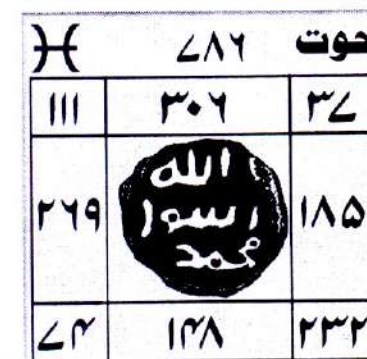 حوت ۷۸۶ ♓
۳۷ ۳۰۶ ۱۱۱
۱۸۵ ۲۶۹
الله
رسول
محمد
۲۳۲ ۱۴۸ ۷۴